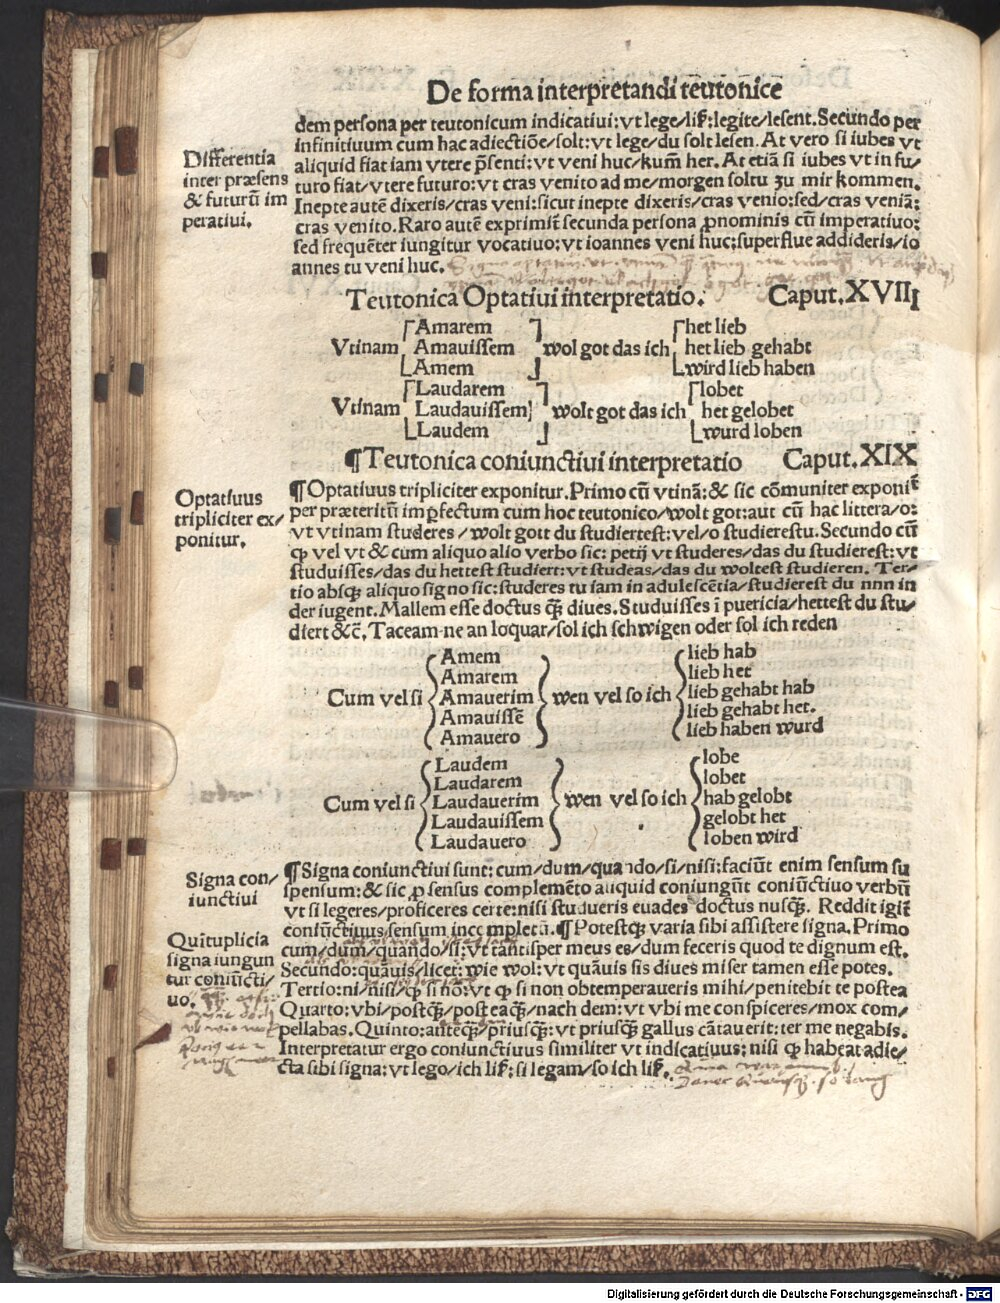 De forma interpretandi teutonice
dem persona per teutonicum indicatiui: vt lege/liß: legite/lesent. Secundo per
infinitiuum cum hac adiectiõe/solt: vt lege/du solt lesen. At vero si iubes vt
aliquid fiat iam vtere p̃senti: vt veni huc/kum̃ her. At etiã si iubes vt in fu/
turo fiat/vtere futuro: vt cras venito ad me/morgen soltu zu mir kommen.
Inepte autẽ dixeris/cras veni: sicut inepte dixeris/cras venio: sed/cras veniã:
cras venito. Raro autẽ exprimit̃ secunda persona ꝓnominis cũ imperatiuo:
sed frequẽter iungitur vocatiuo: vt ioannes veni huc: superflue addideris/io
annes tu veni huc.
Differentia
inter præsens
& futurũ im
peratiui.
Teutonica Optatiui interpretatio. Caput. XVIII
Vtinam Amarem Amauissem Amem wol got das ich het lieb het lieb gehabt wird lieb haben
Vtinam Laudarem Laudauissem Laudem wolt got das ich lobet het gelobet wurd loben
¶ Teutonica coniunctiui interpretatio Caput. XIX
Optatiuus
tripliciter ex/
ponitur.
¶ Optatiuus tripliciter exponitur. Primo cũ vtinã: & sic cõmuniter exponit̃
per præteritũ imꝑfectum cum hoc teutonico/wolt got: aut cũ hac littera/o:
vt vtinam studeres/wolt gott du studiertest: vel/o studierestu. Secundo cũ
ꝙ vel vt & cum aliquo alio verbo sic: petij vt studeres/das du studierest: vt
studuisses/das du hettest studiert: vt studeas/das du woltest studieren. Ter/
tio absqꝫ aliquo signo sic: studeres tu iam in adulescẽtia/studierest du nnn in
der iugent. Mallem esse doctus q̃ꝫ diues. Studuisses ĩ puericia/hettest du stu/
diert &c̃. Taceam-ne an loquar/sol ich schwigen oder sol ich reden
Cum vel si Amem Amarem Amauerim Amauissẽ Amauero wen vel so ich lieb hab lieb het lieb gehabt hab lieb gehabt het. lieb haben wurd
Cum vel si Laudem Laudarem Laudauerim Laudauissem Laudauero wen vel so ich lobe lobet hab gelobt gelobt het loben wird
Signa con/
iunctiui
¶ Signa coniunctiui sunt: cum/dum/quando/si/nisi: faciũt enim sensum su
spensum: & sic ꝓ sensus complemẽto aliquid coniungũt coniũctiuo verbũ
vt si legeres/proficeres certe: nisi studueris euades doctus nusq̃ꝫ. Reddit igit̃
coniũctiuus sensum incompletũ. ¶ Potestqꝫ varia sibi assistere signa. Primo
cum/dum/quando/si: vt tantisper meus es/dum feceris quod te dignum est.
Secundo: quãuis/licet: wie wol: vt quãuis sis diues miser tamen esse potes.
Tertio: ni/nisi/ꝙ si nõ: vt ꝙ si non obtemperaueris mihi/penitebit te postea
Quarto: vbi/postq̃ꝫ/posteaq̃ꝫ/nach dem: vt vbi me conspiceres/mox com/
pellabas. Quinto: anteq̃ꝫ/priusq̃ꝫ: vt priusq̃ꝫ gallus cãtauerit: ter me negabis.
Interpretatur ergo coniunctiuus similiter vt indicatiuus: nisi ꝙ habeat adie/
cta sibi signa: vt lego/ich liß: si legam/so ich liß.
Quĩtuplicia
signa iungun
tur coniũcti/
uo.
Digitalisierung gefördert durch die Deutsche Forschungsgemeinschaft - DFG